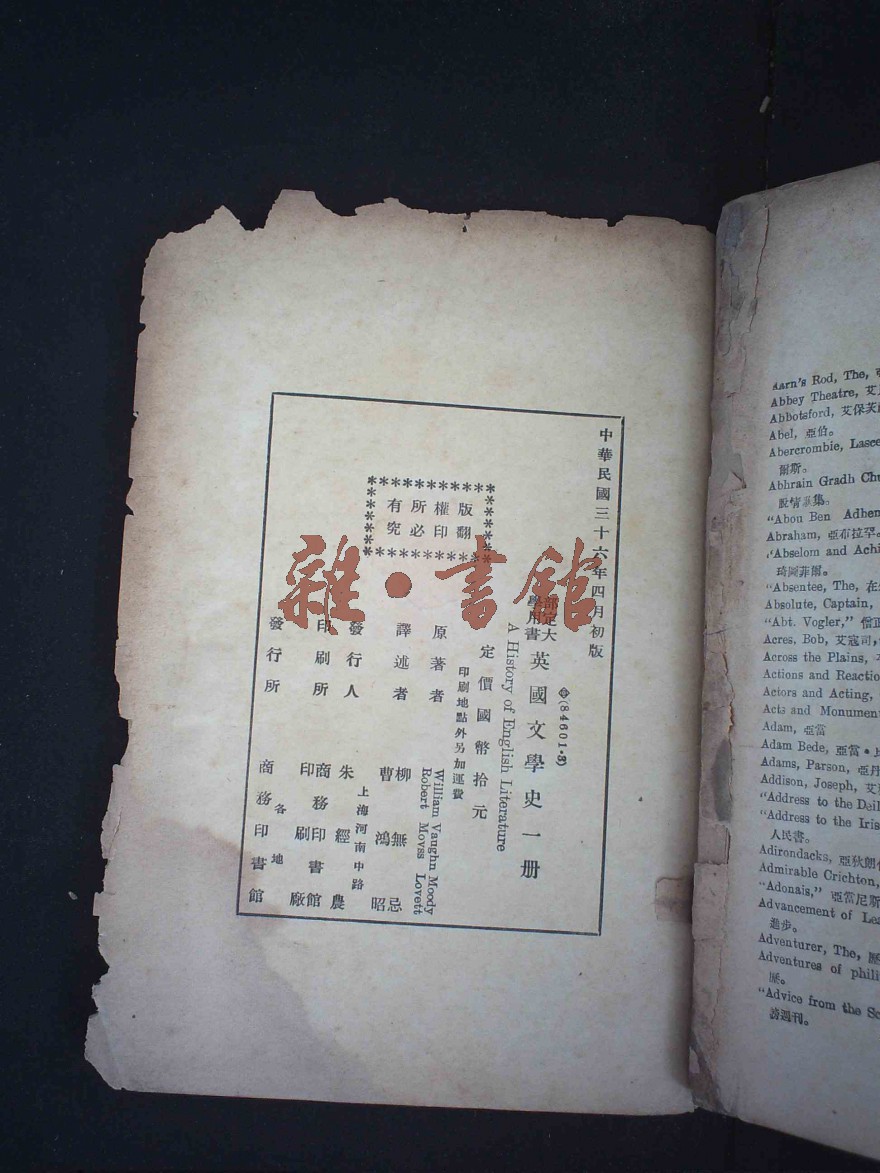 中華民國三十六年四月初版
(84601·3)
部定大學用書 英國文學史一册
A History of English Literature
定價國幣拾元
印刷地點外另加運費
版權所有
翻印必究
原著者 William Vaughn Moody
Robert Movss Lovett
譯述者 柳無忌
曹鴻昭
發行人 朱經農
上海河南中路
印刷所 商務印書館
印刷廠
發行所 各地
商務印書館
雜·書館
Aarn's Rod, The,
Abbey Theatre, 艾
Abbotsford, 艾保芙
Abel, 亞伯。
Abercrombie, Lasce
爾斯。
Abhrain Gradh Chu
集。
"Abou Ben Adhem
Abraham, 亞布拉罕。
"Abselom and Achi
琦圖菲爾。
"Absentee, The, 在
Absolute, Captain,
"Abt. Vogler," 僧正
Acres, Bob, 艾寇司,
Across the Plains,
Actions and Reactio
Actors and Acting,
Acts and Monumen
Adam, 亞當
Adam Bede, 亞當·
Adams, Parson, 亞丹
Addison, Joseph, 艾
"Address to the Deil
"Address to the Iris
人民書。
Adirondacks, 亞狄朗
Admirable Crichton,
"Adonais," 亞當尼斯
Advancement of Lea
進步。
Adventurer, The, 歷
Adventures of phili
歷。
"Advice from the Sc
詩週刊。